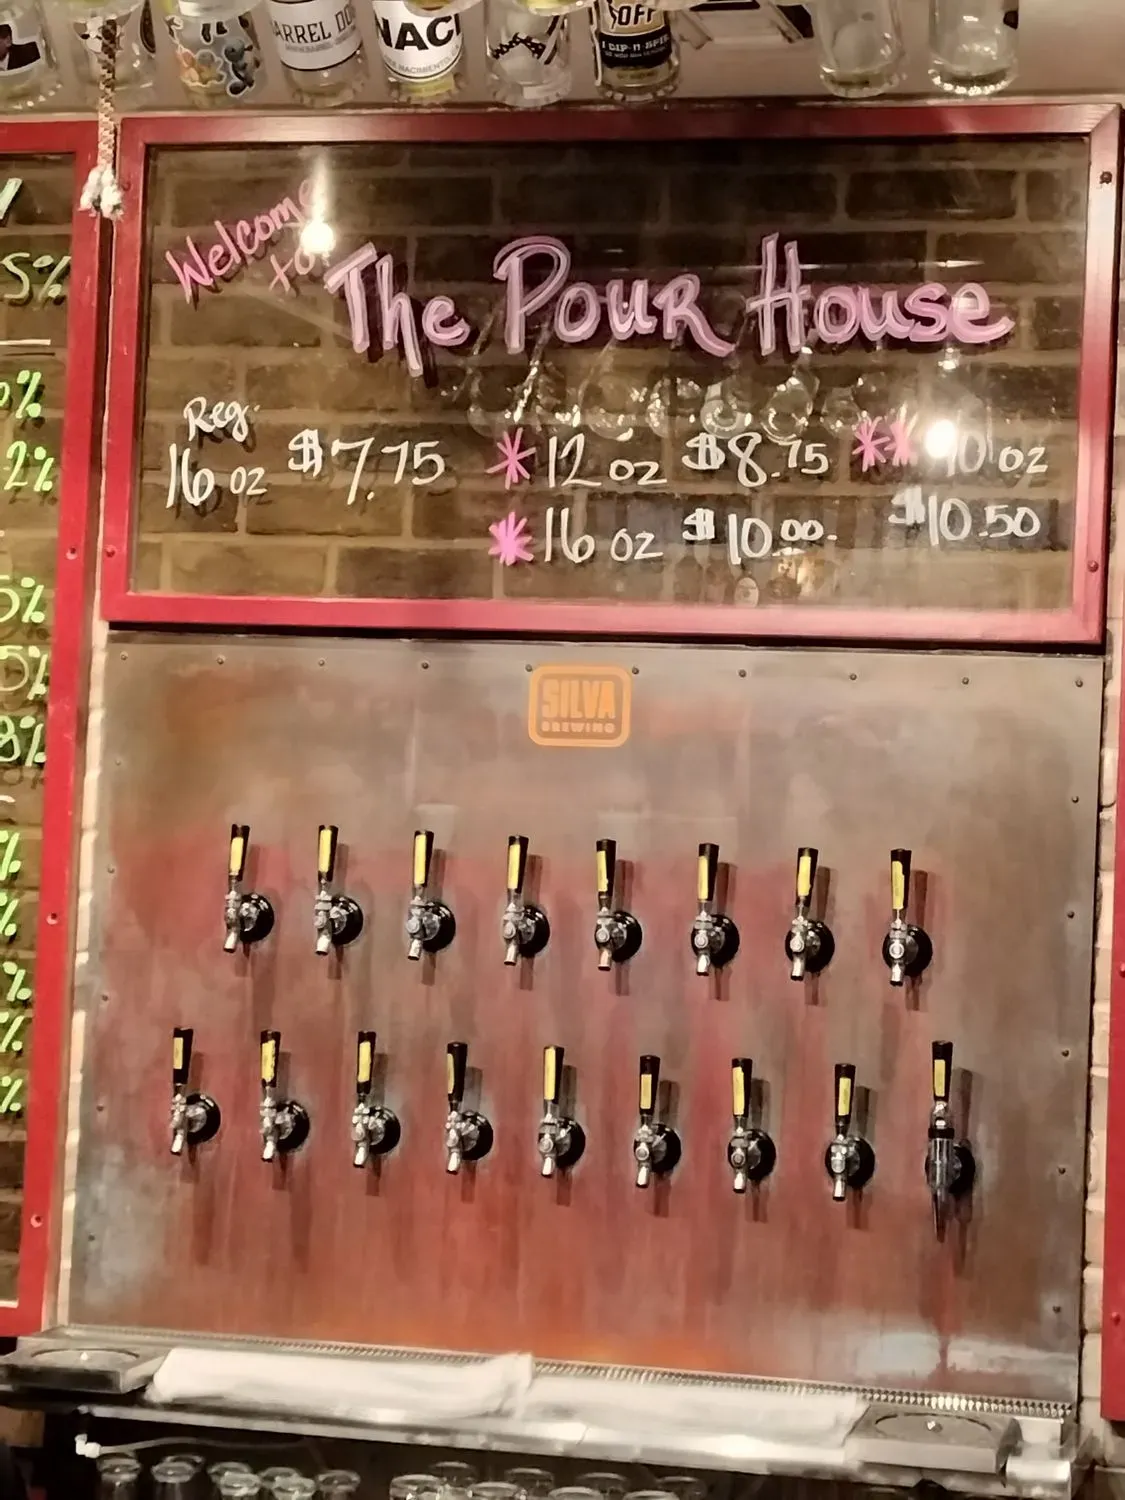 BARREL DO
NACI
SOFF
I DIP-N-SPIT
5%
0%
2%
5%
5%
8%
%
%
%
%
%
Welcome
to
The Pour House
Reg.
16 oz $7.75
*12 oz $8.75
*16 oz $10.00
**10 oz
$10.50
SILVA
BREWING